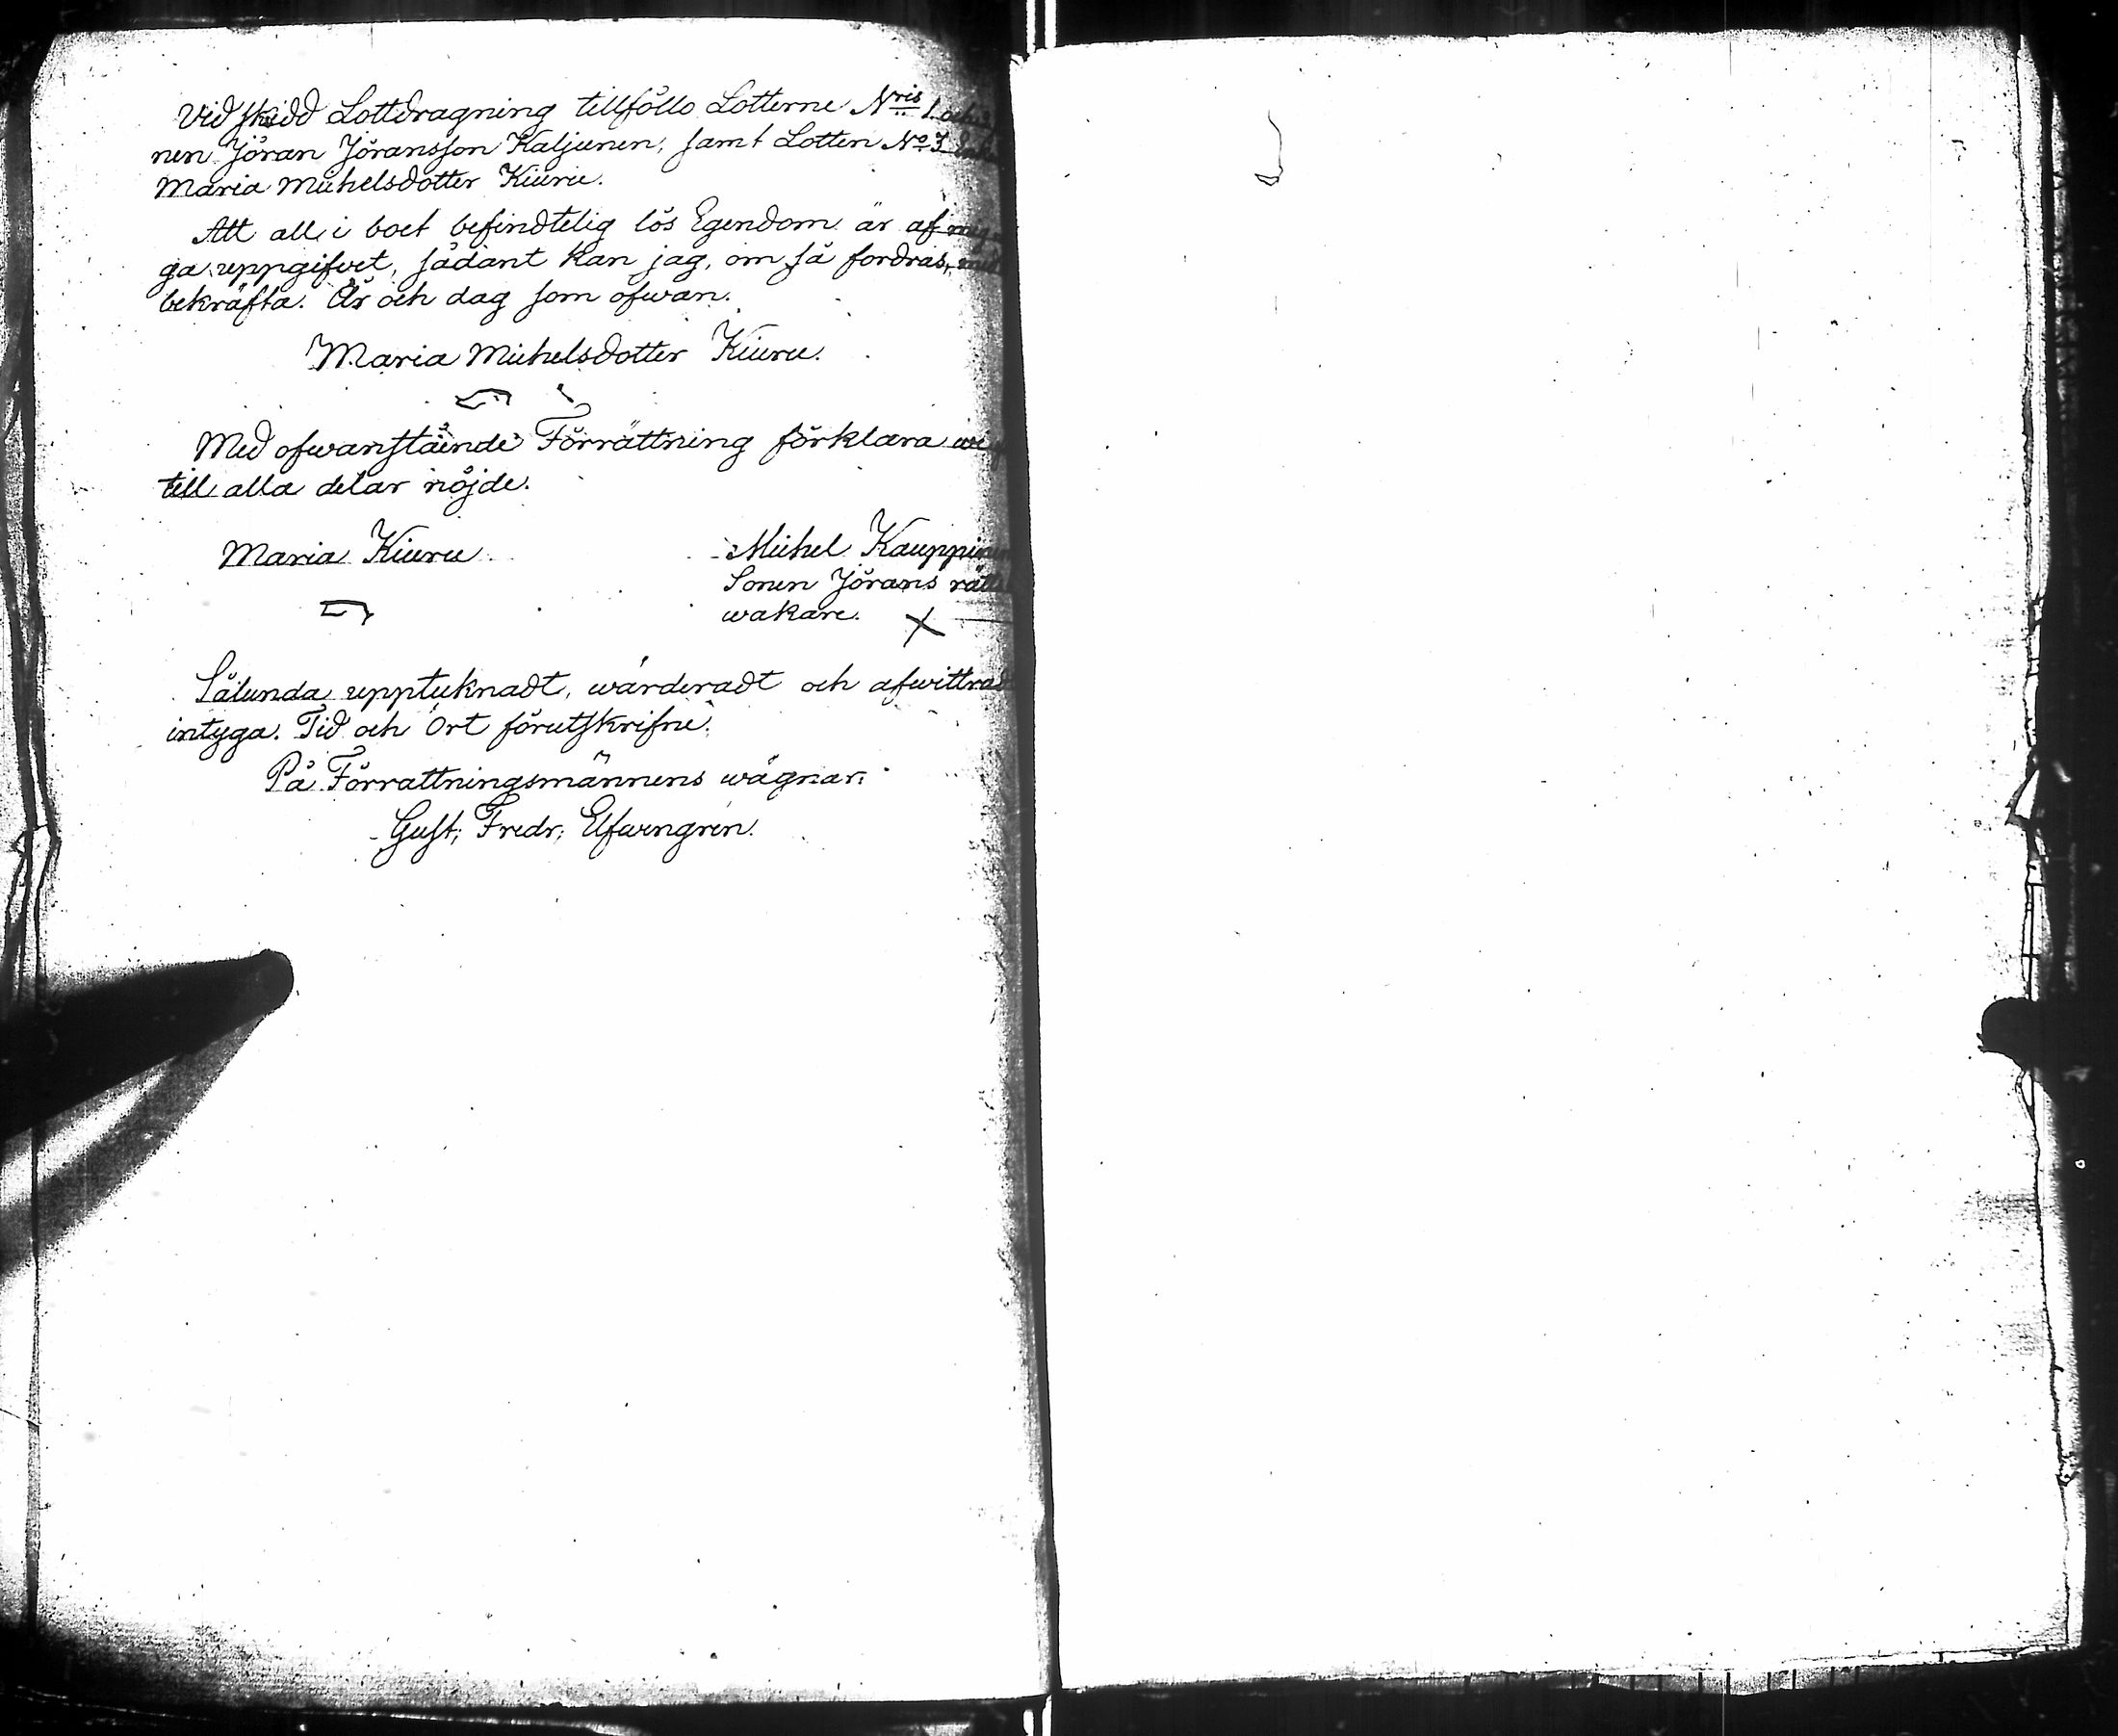 Vid skedd Lottdragning tillföllo Lotterne N:ris 1. och 2
nen Jöran Jöransson Kaljunen, samt Lotten No 3
Maria Michelsdotter Kiuru.
Att all i boet befindtelig lös Egendom är af mig
ga uppgifvet, sådant kan jag, om så fordras, med
bekräfta. År och dag som ofwan.
Maria Michelsdotter Kiuru.
Med ofwanstående Förrättning förklara wi
till alla delar nöjde.
Maria Kiuru
Michel Kauppinen
Sonen Jörans rätts
wakare.
Sålunda upptecknadt, wärderadt och afwittradt
intyga. Tid och Ort förutskrifne.
På Förrattningsmännens wägnar:
Gust; Fredr; Elfwengren.